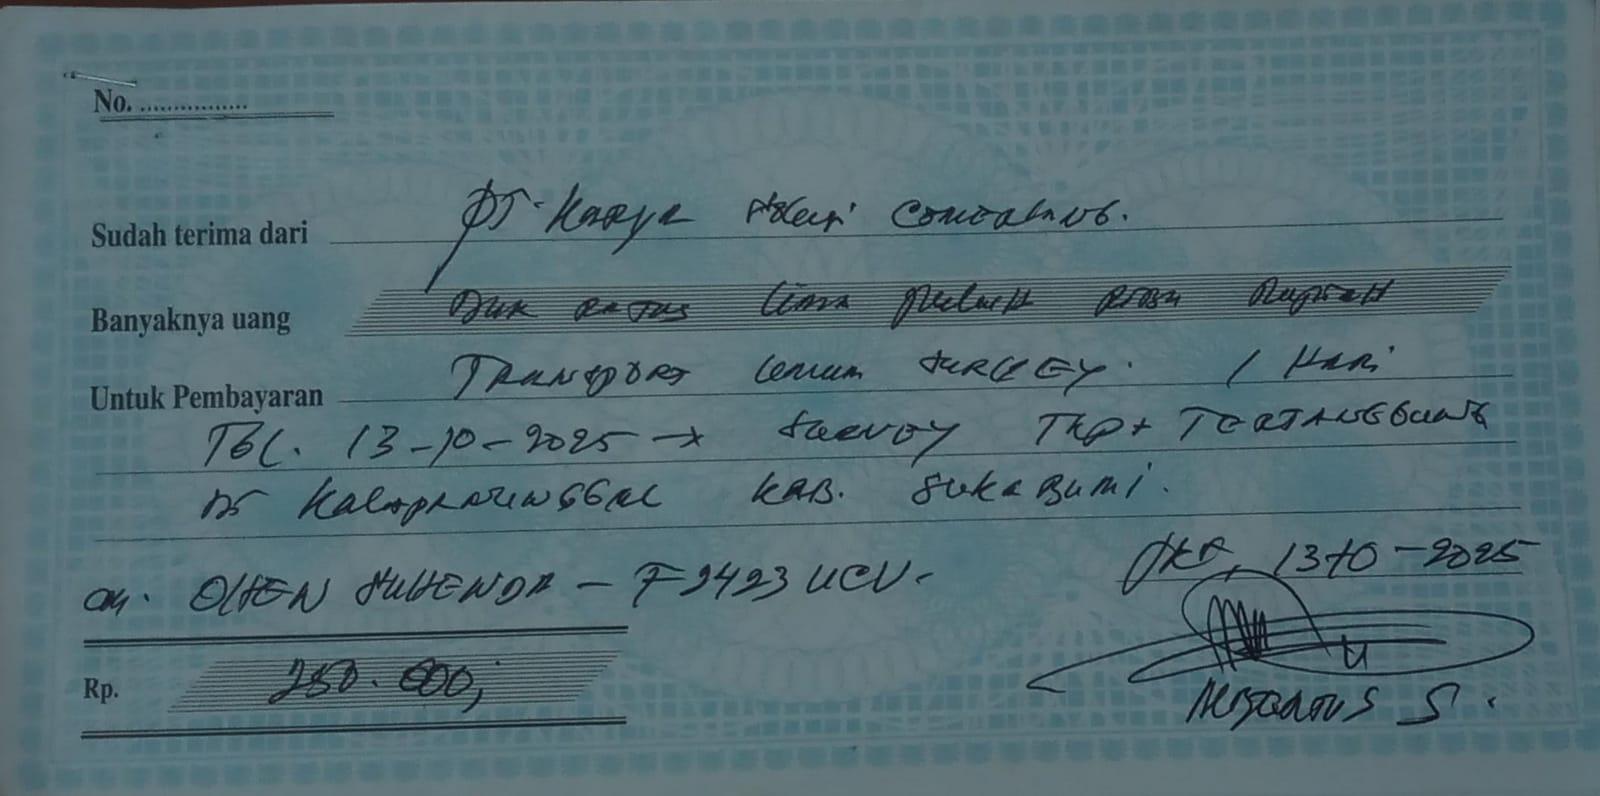 No. ................
Sudah terima dari PT. Karya
Banyaknya uang Dua Ratus Lima Puluh Ribu Rupiah
Untuk Pembayaran TRANSPORT SURVEY. 1 HARI
TGL. 13-10-2025 → SURVEY TKP + TERTANGGUNG
DS KALAPANUNGGAL KAB. SUKABUMI.
OLSEN SUHENDA - F 2423 UCV.
JKT, 13-10-2025
Rp. 250.000,-
S.